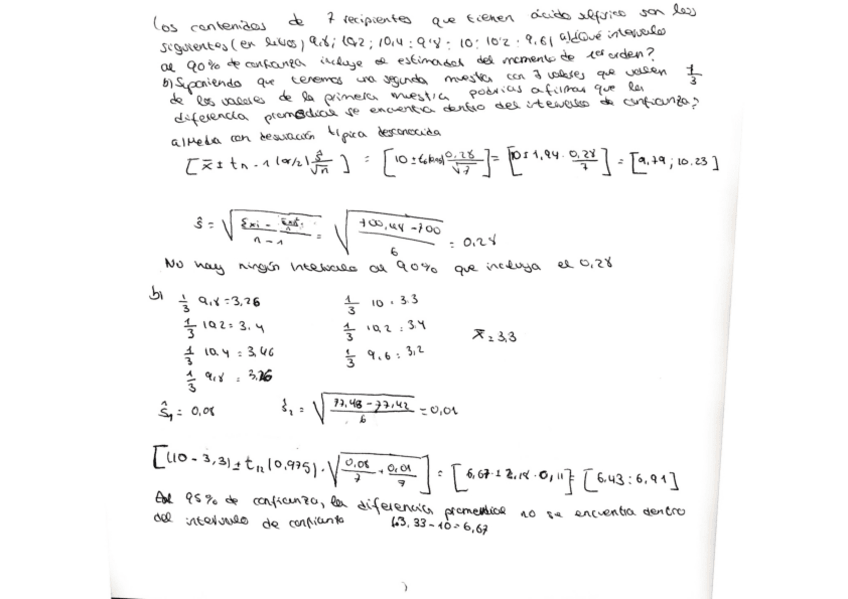 Los contenidos de 7 recipientes que tienen ácido sulfúrico son los
siguientes (en litros) 9,8; 10,2; 10,4; 9'8; 10; 10'2; 9,6) a) ¿Qué intervalo
al 90% de confianza incluye el estimador del momento de 1er orden?
b) Suponiendo que tenemos una segunda muestra con 7 valores que valen 1/3
de los valores de la primera muestra podrías afirmar que la
diferencia promedial se encuentra dentro del intervalo de confianza?
a) Media con desviación típica desconocida
[x̄ ± tn-1 (α/2) ŝ/√n] = [10 ± 0,28/√7] = [10 ± 1,94 · 0,28/7] = [9,79 ; 10.23]
ŝ = √(Σxi - /n-1) = √(700,48 - 700/6) = 0,28
No hay ningún intervalo al 90% que incluya el 0,28
b)
1/3 9,8 = 3,26
1/3 10,2 = 3,4
1/3 10,4 = 3,46
1/3 9,8 = 3,26
1/3 10 = 3.3
1/3 10,2 = 3,4
1/3 9,6 = 3,2
x̄ = 3,3
ŝ1 = 0,08 ŝ2 = √(77,48 - 77,42/6) = 0,01
[(10 - 3,3) ± t12 (0,975) · √(0,08/7 + 0,01/7)] = [6,67 ± 2,18 · 0,11] = [6,43 ; 6,91]
Al 95% de confianza, la diferencia promedial no se encuentra dentro
del intervalo de confianza 3,33 - 10 = 6,67